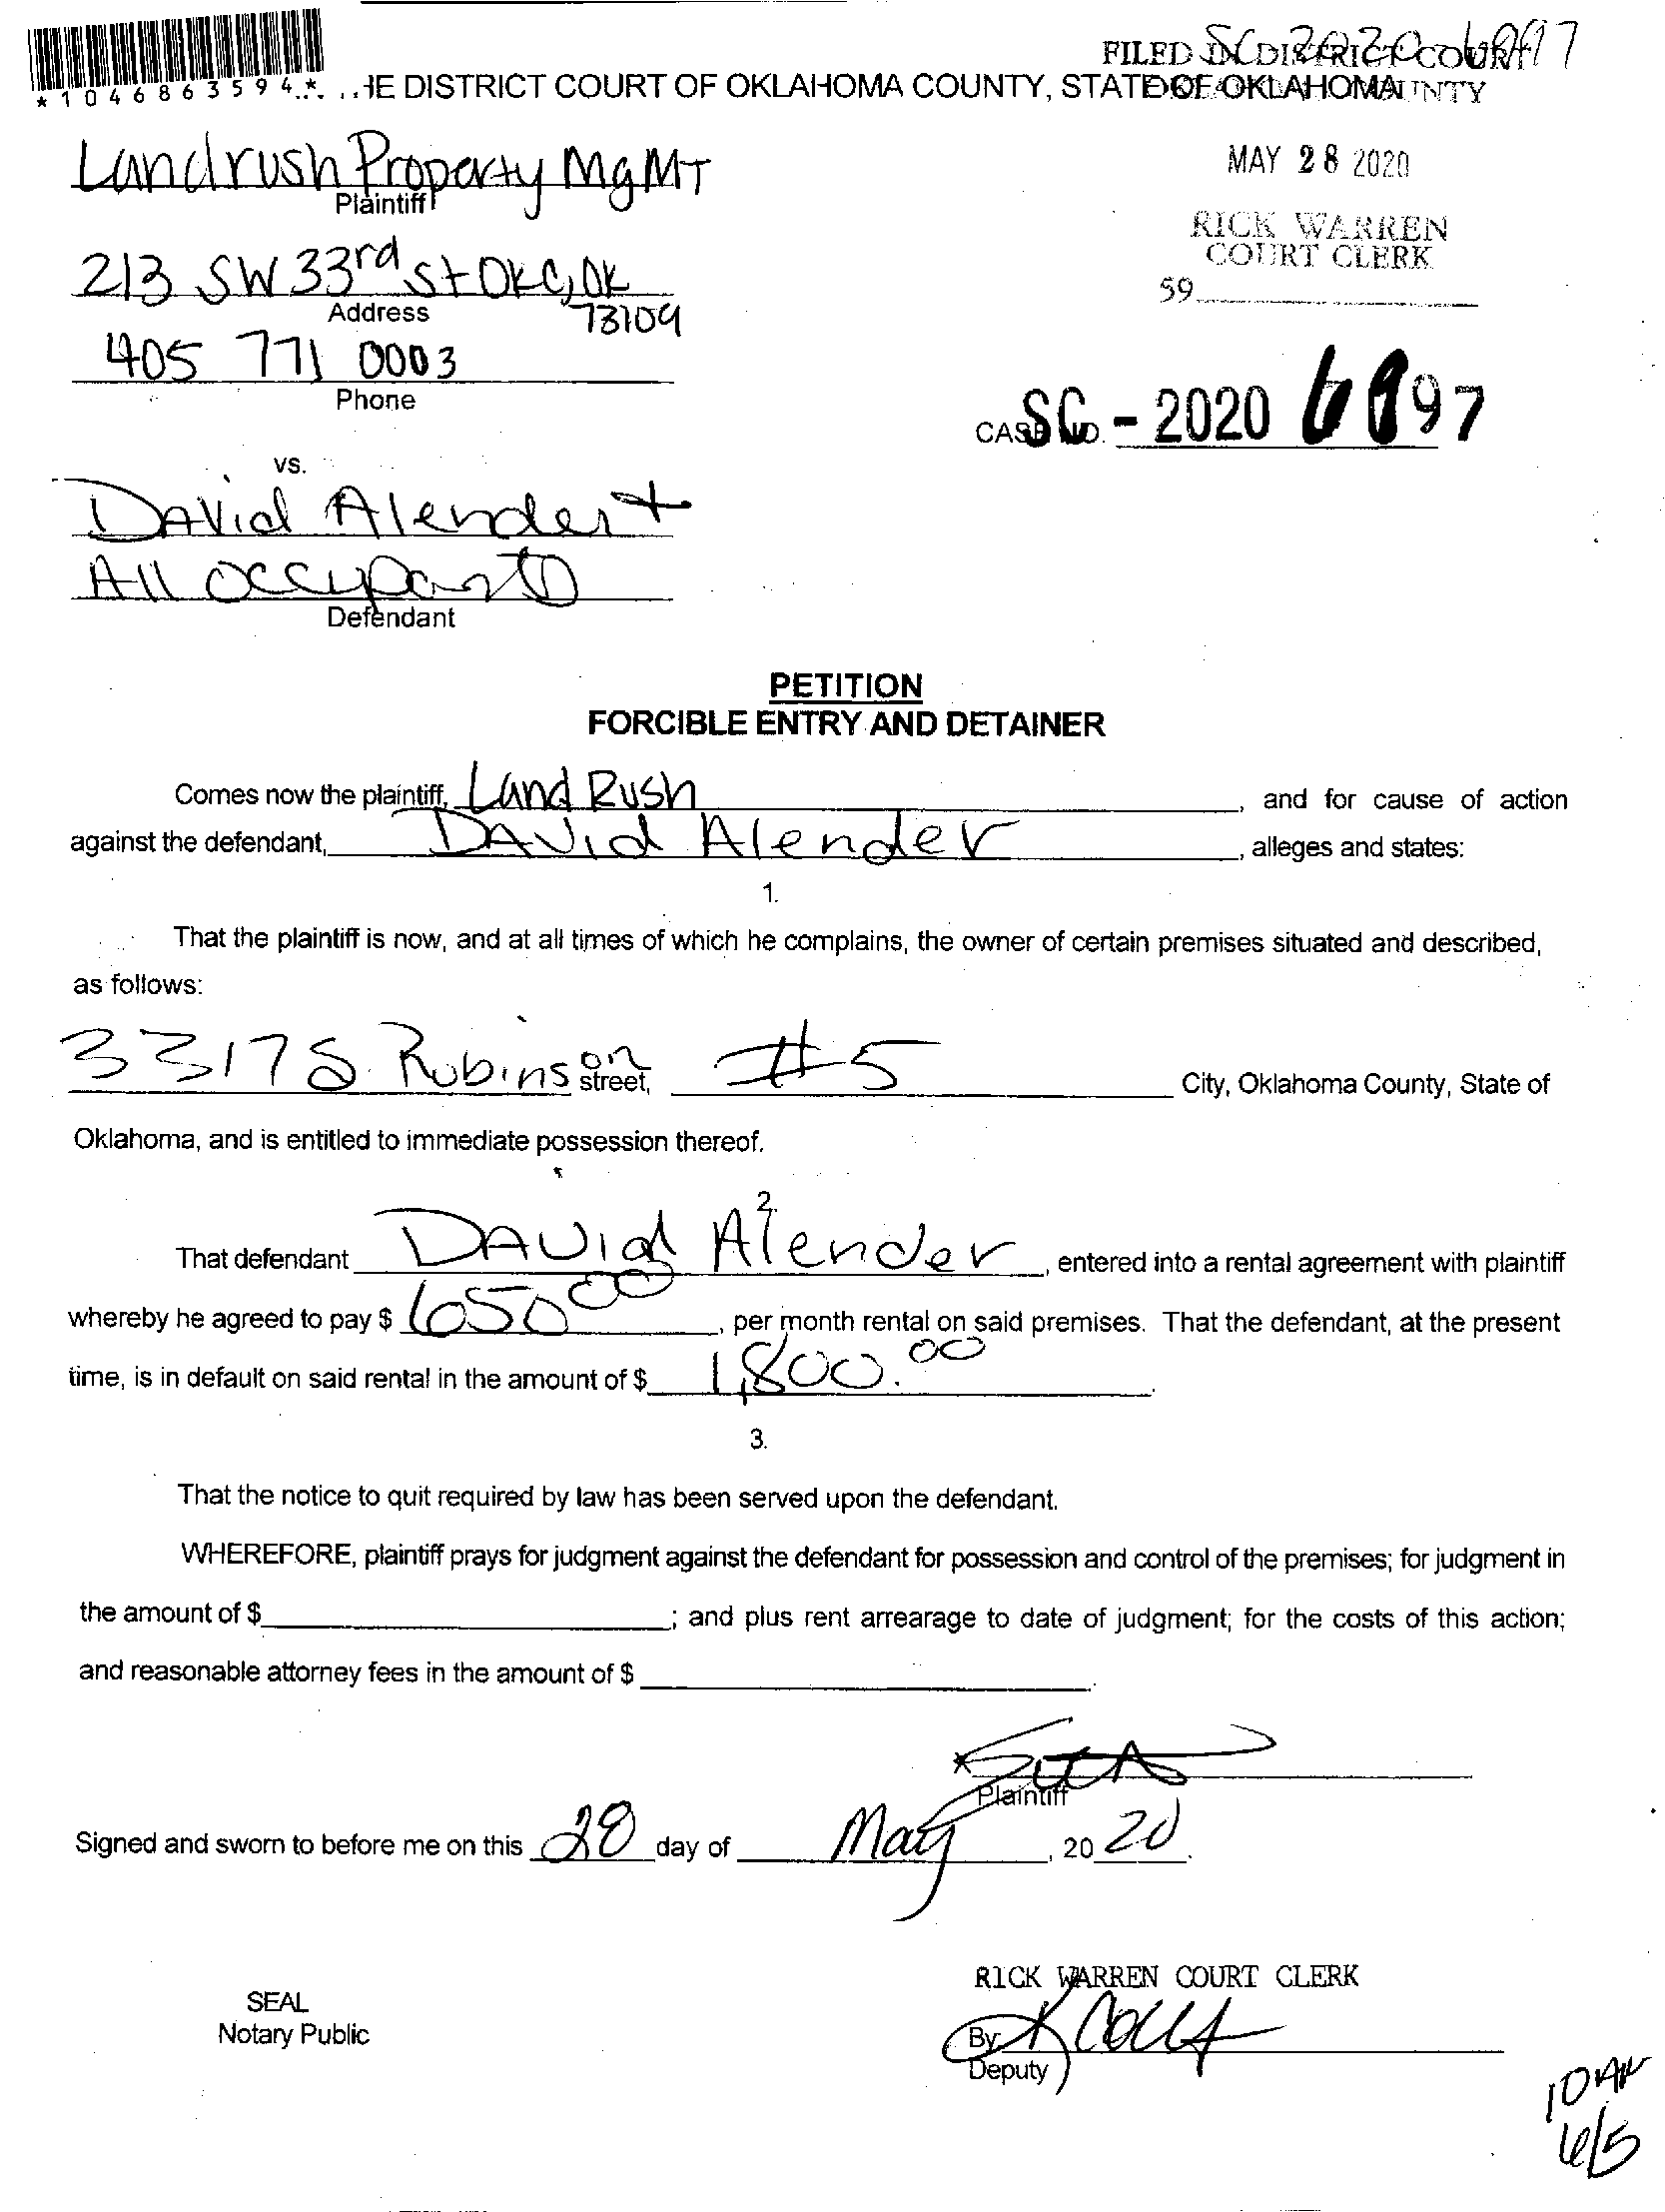 SC 2020-6097
FILED IN DISTRICT COURT
*1046863594* HE DISTRICT COURT OF OKLAHOMA COUNTY, STATE OF OKLAHOMA
Landrush Property MgMT
Plaintiff
MAY 28 2020
RICK WARREN
COURT CLERK
59
213 SW 33rd St OKC, OK
Address
73109
405 771 0003
Phone
CASE NO. SC - 2020 6097
vs.
David Alender +
All Occupants
Defendant
PETITION
FORCIBLE ENTRY AND DETAINER
Comes now the plaintiff, Land Rush, and for cause of action
against the defendant, David Alender, alleges and states:
1.
That the plaintiff is now, and at all times of which he complains, the owner of certain premises situated and described,
as follows:
3317 S. Robinson street, #5 City, Oklahoma County, State of
Oklahoma, and is entitled to immediate possession thereof.
2.
That defendant David Alender, entered into a rental agreement with plaintiff
whereby he agreed to pay $ 650 00, per month rental on said premises. That the defendant, at the present
time, is in default on said rental in the amount of $ 1,800.00.
3.
That the notice to quit required by law has been served upon the defendant.
WHEREFORE, plaintiff prays for judgment against the defendant for possession and control of the premises; for judgment in
the amount of $ ; and plus rent arrearage to date of judgment; for the costs of this action;
and reasonable attorney fees in the amount of $ .
Plaintiff
Signed and sworn to before me on this 28 day of May, 20 20.
RICK WARREN COURT CLERK
SEAL
Notary Public
By:
Deputy
10 AM
6/5